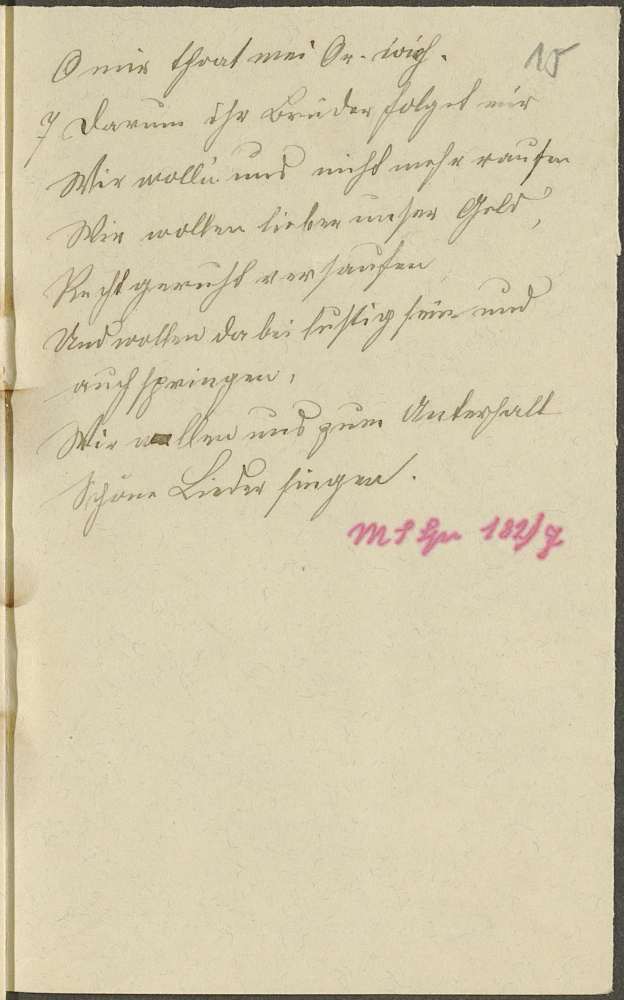 O mir thoat mei Or- wich.
15
7 Darum ihr Brüder folget mir
Wir wolln uns nicht mehr raufen
Wir wollen lieber unser Geld,
Recht geruht versaufen
Und wollen dabei lustig sein und
auch springen,
Wir wollen uns zum Unterhalt
Schöne Lieder singen.
182/7